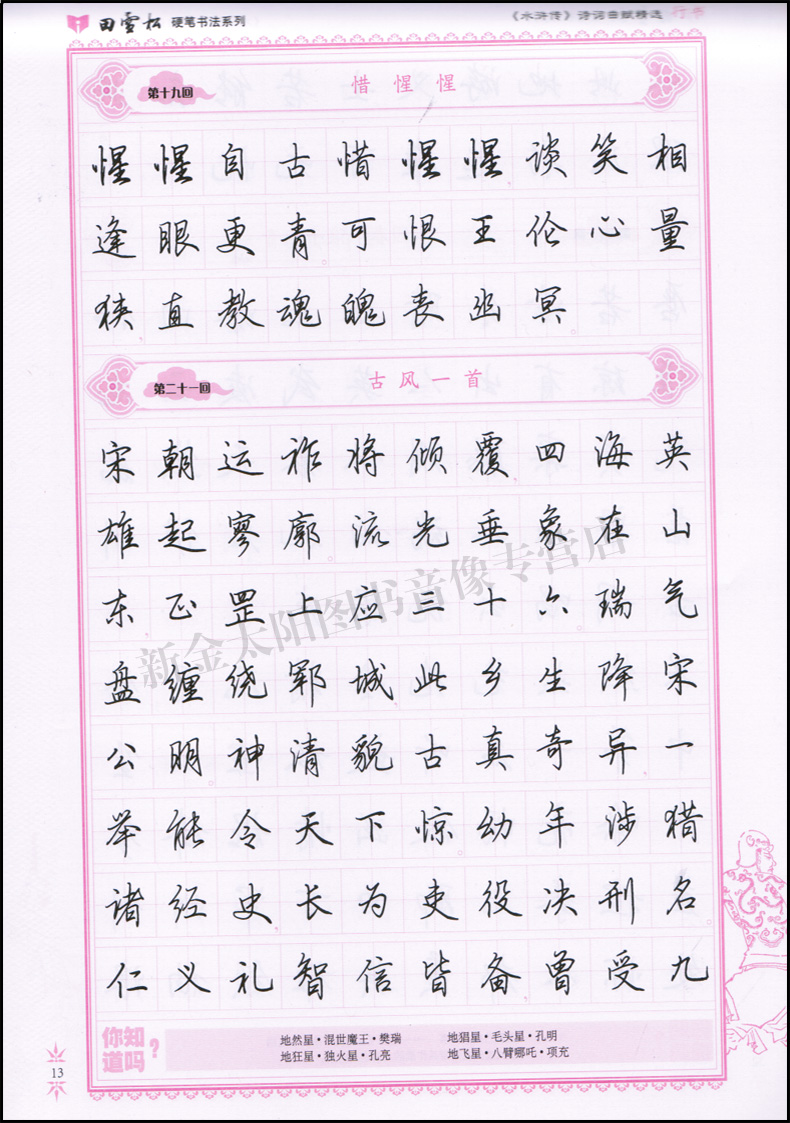 田雪松 硬笔书法系列
《水浒传》诗词曲赋精选 行书
第十九回 惜惺惺
惺惺自古惜惺惺谈笑相
逢眼更青可恨王伦心量
狭直教魂魄丧幽冥
第二十一回 古风一首
宋朝运祚将倾覆四海英
雄起寥廓流光垂象在山
东正罡上应三十六瑞气
盘缠绕郓城此乡生降宋
公明神清貌古真奇异一
举能令天下惊幼年涉猎
诸经史长为吏役决刑名
仁义礼智信皆备曾受九
你知道吗?
地然星·混世魔王·樊瑞 地猖星·毛头星·孔明
地狂星·独火星·孔亮 地飞星·八臂哪吒·项充
13
新金太阳图书音像专营店